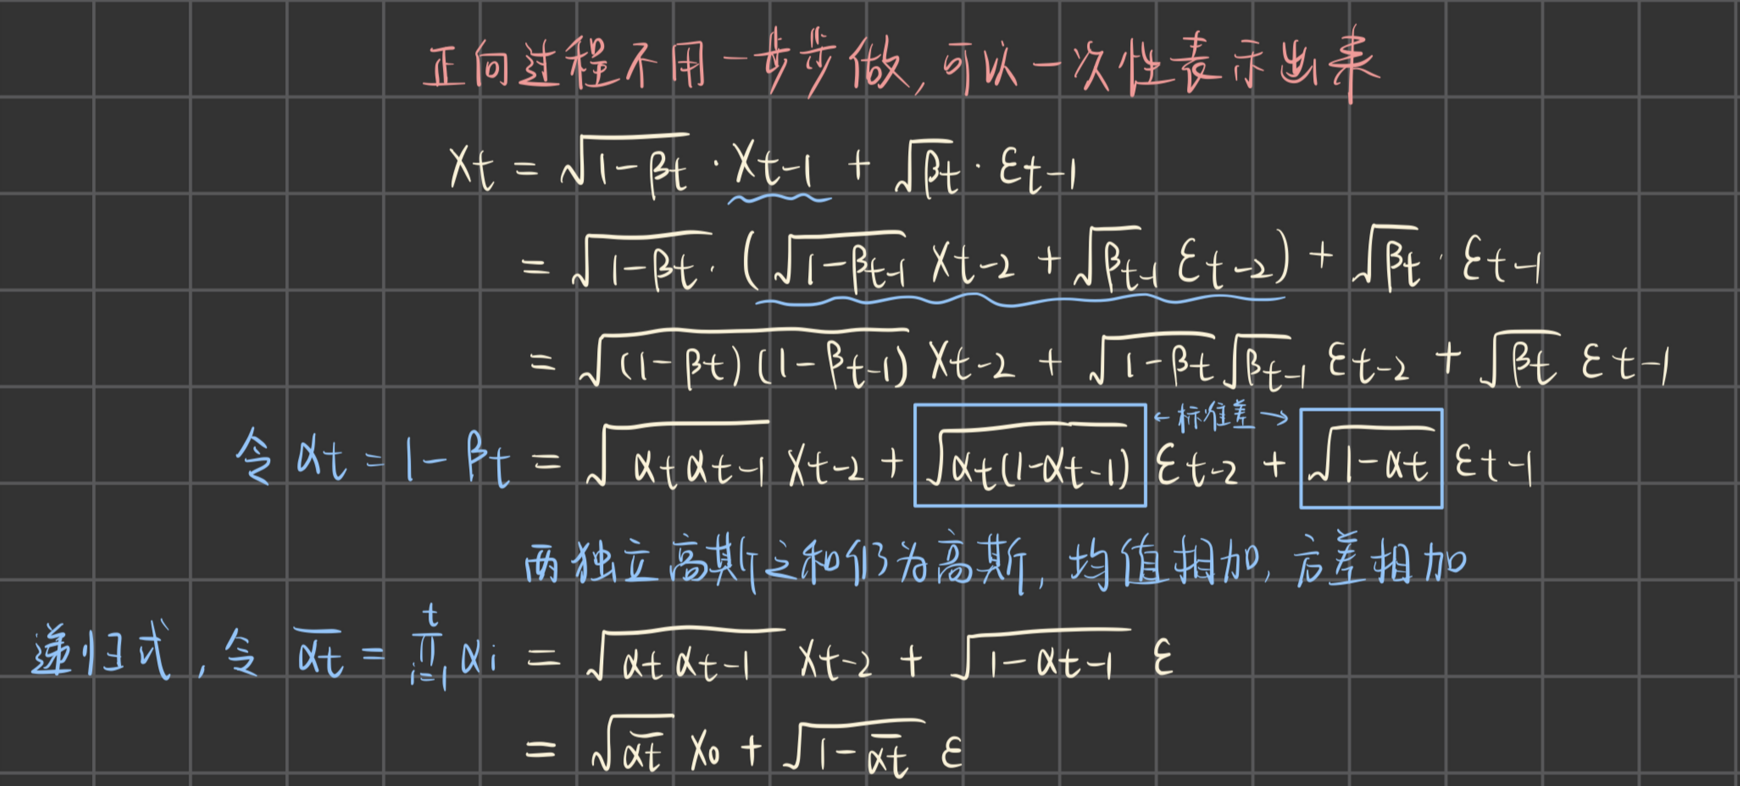 正向过程不用一步步做,可以一次性表示出来
Xt = √(1-βt) · Xt-1 + √βt · εt-1
= √(1-βt) · (√(1-βt-1) Xt-2 + √βt-1 εt-2) + √βt · εt-1
= √((1-βt)(1-βt-1)) Xt-2 + √(1-βt) √βt-1 εt-2 + √βt εt-1
←标准差→
令 αt = 1-βt = √(αtαt-1) Xt-2 + √(αt(1-αt-1)) εt-2 + √(1-αt) εt-1
两独立高斯之和仍为高斯,均值相加,方差相加
递归式,令 ᾱt = ∏_{i=1}^{t} αi = √(αtαt-1) Xt-2 + √(1-αt-1) ε
= √ᾱt X₀ + √(1-ᾱt) ε